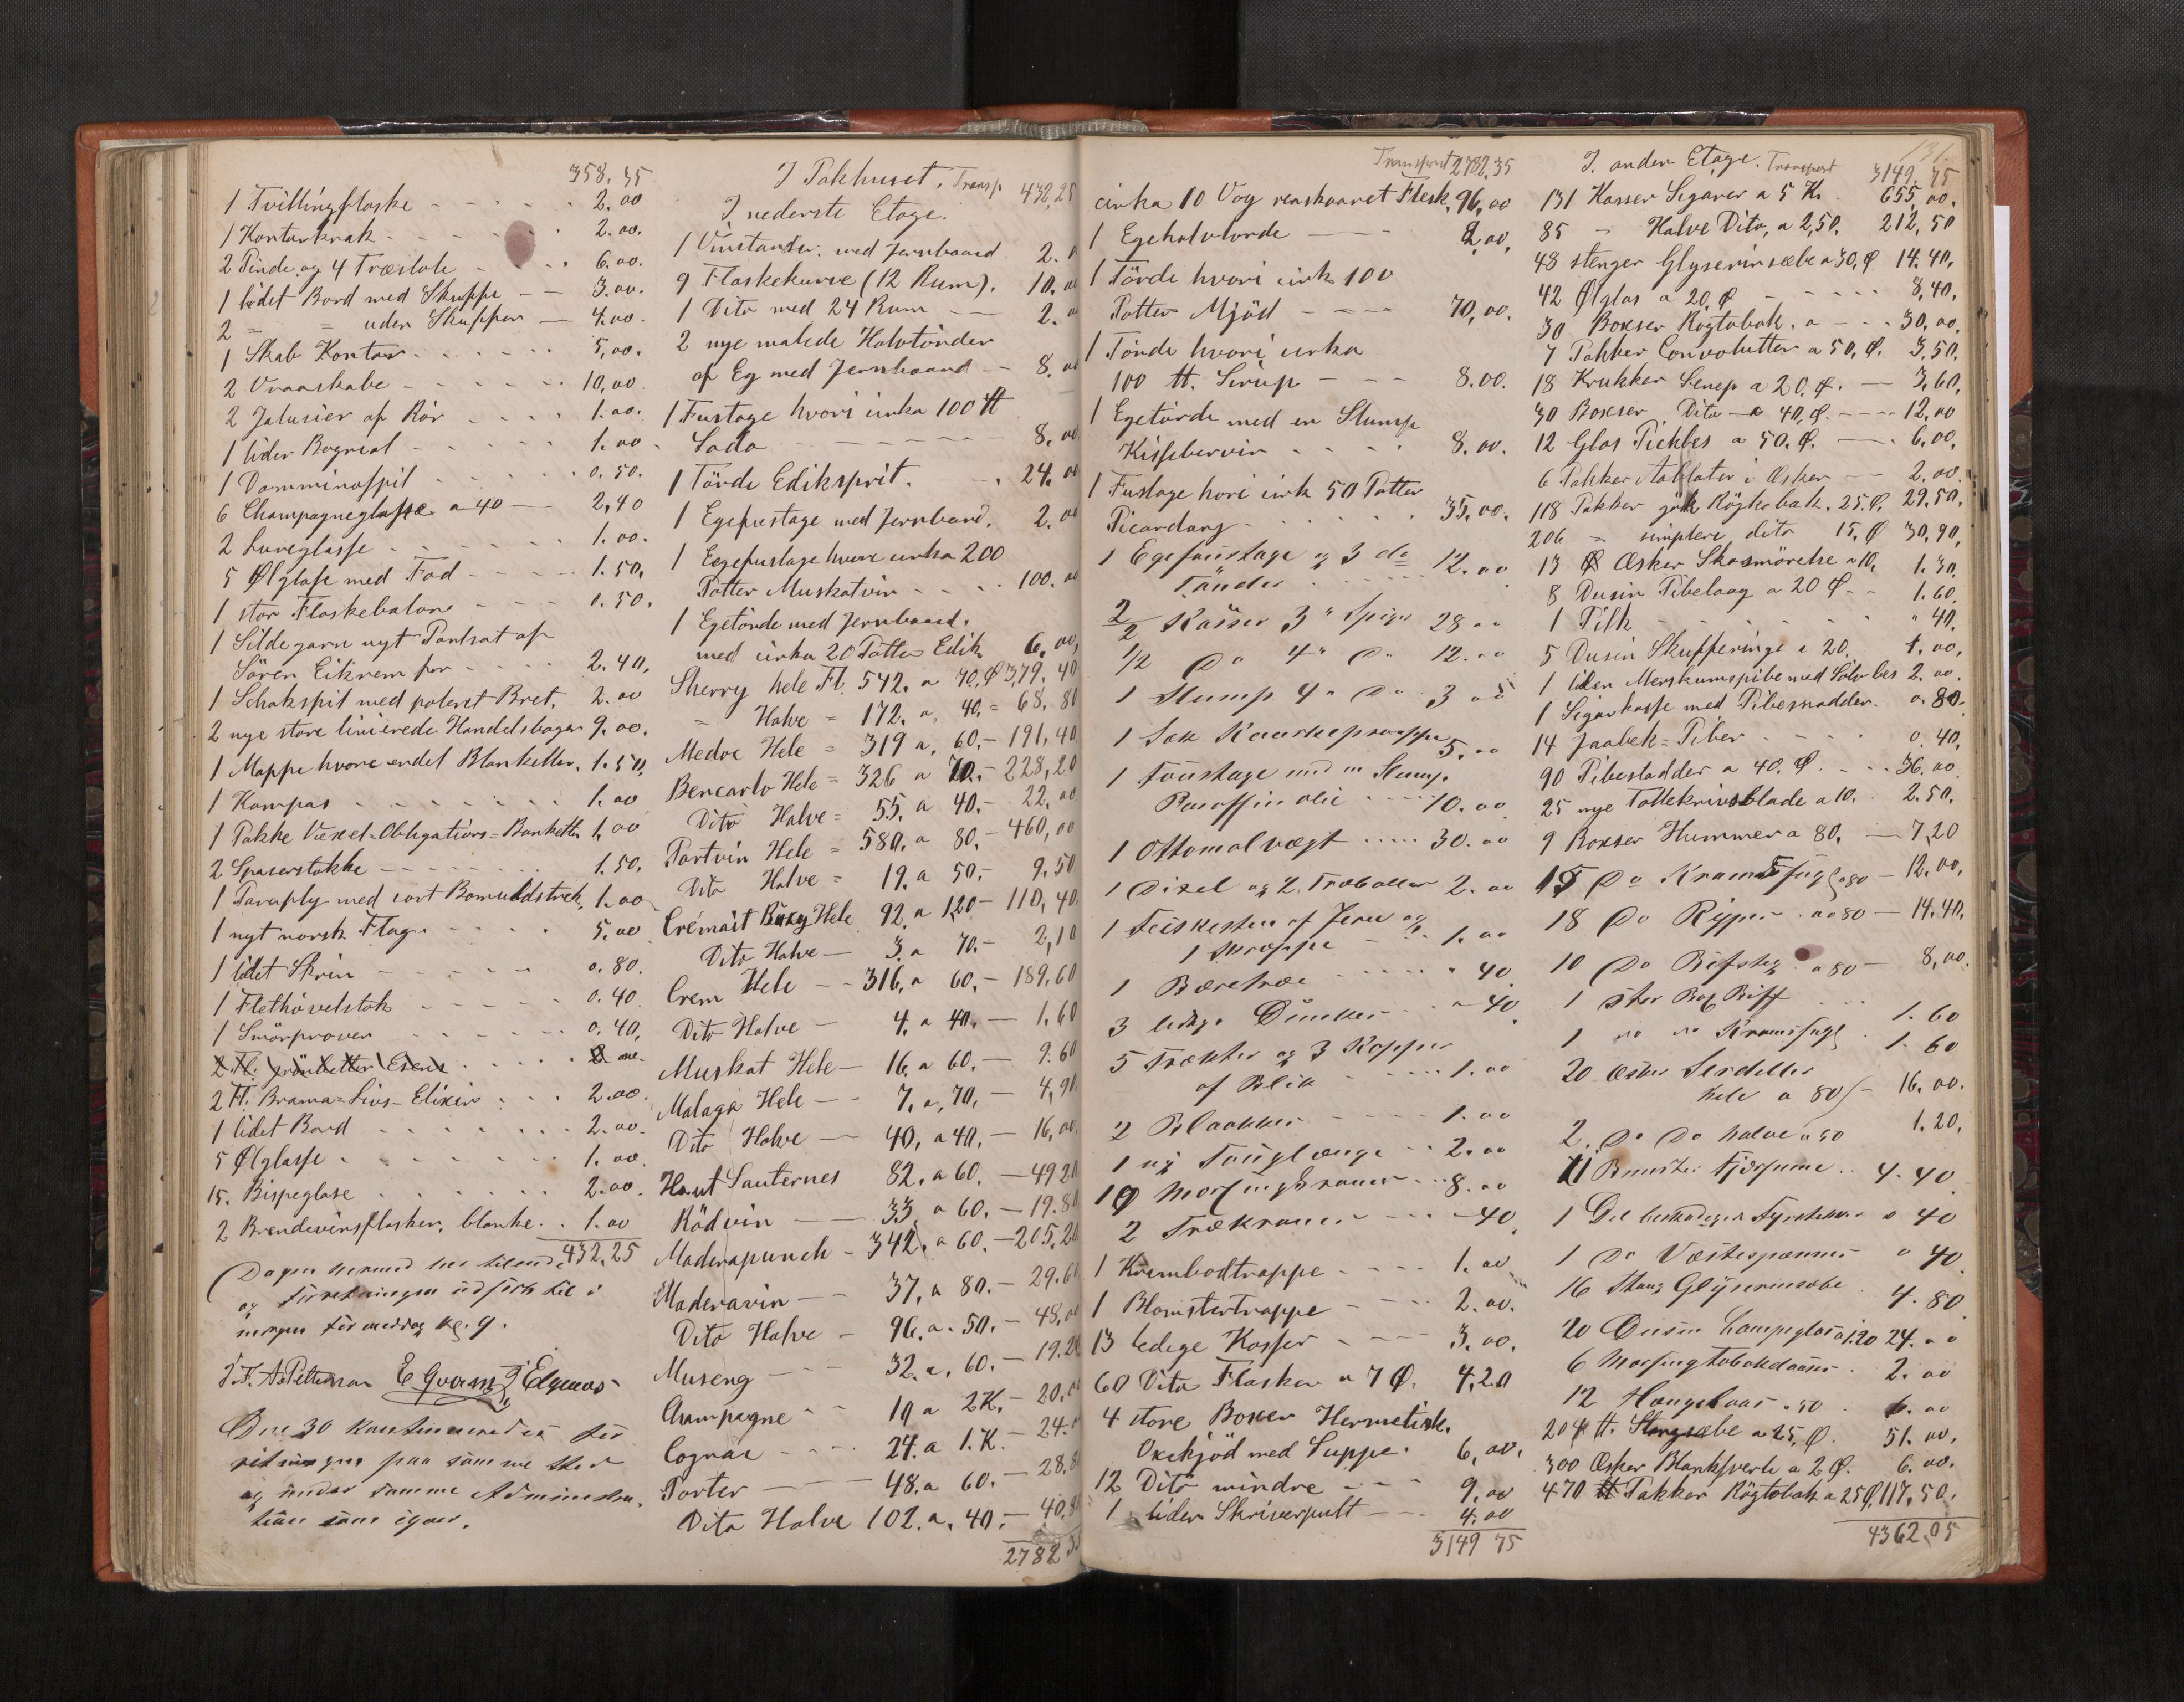 358,35
1 Tvillingflaske - - - - - 2.00
1 Kontorkrak - - - - - 2.00.
2 Pinde og 4 Træstole - - - 6.00.
1 lidet Bord med Skuffe - - 3.00.
2 = = uden Skuffer - 4.00.
1 Skab Kontor - - - - - 5,00.
2 Vraaskabe - - - - - 10,00.
2 Jalusier af Rör - - - - 1.00.
1 liden Bogreol - - - - - 1.00
1 Dominospil - - - - - 0.50.
6 Champagneglasse a 40 - 2,40
2 Lureglasse - - - - - 1.00.
5 Ølglase med Fod - - - - 1.50,
1 stor Flaskebalone - - - 0.50.
1 Sildegarn nyt Pantsat af
Sören Eikrem for - - - - 2.40,
1 Schakspil med poleret Bret, 2.00
2 nye store linierede Handelsboger 9.00.
1 Mappe hvore endel Blanketter, 1.50,
1 Kompas - - - - - - 1.00
1 Pakke Vexel-Obligations-Banketter 1,00
2 Spaserstokke - - - - - 1.50,
1 Paraply med sort Bomuldstræk, 1.00
1 nyt norsk Flag - - - - 5.00
1 lidet Skrin - - - - - 0.80.
1 Flethövelstok - - - - - 0.40
1 Smörprover - - - - - 0.40,
2 Fl. Brama-Livs-Elixir - - - 2.00.
1 lidet Bord - - - - - 2.00.
5 Ølglasse - - - - - 1.00.
15. Bispeglase - - - - - 2.00.
2 Brendevinsflasker, blanke. . 1.00
432,25
og Forretningen udsat til i
morgen Formiddag Kl. 9.
E Qvam
Den 30 kontinueredes For
retningen paa samme Sted
og under samme Administra
tion som igaar.
I Pakhuset. Transp. 432,25
I nederste Etage.
1 Vinstander med Jernbaand 2.0
9 Flaskekurve (12 Rum). 10.00
1 Dito med 24 Rum - - 2.0
2 nye malede Halvtönder
af Eg med Jernbaand - - 8.00
1 Fustage hvori cirka 100 ℔
Soda - - - - - - 8.00
1 Törde Ediksprit. . 24.00
1 Egefustage med Jernbaand. 2.00
1 Egefustage hvore cirka 200
Potter Muskatvin - - - 100.00
1 Egetönde med Jernbaand.
med cirka 20 Potter Edik 6.00,
Sherry hele Fl. 542. a 70, Ø 379.40
= Halve = 172. a. 40. = 68.80
Medoc Hele = 319 a, 60,- 191,40
Bencarlo Hele = 326 a 70.- 228,20
Dito Halve = 55. a 40.- 22,00
Portvin Hele = 580. a 80,- 460,00
Dito Halve = 19. a 50,- 9.50
Crémait Buxy Hele 92. a 120- 110,40
Dito Halve - 3. a 70.- 2,10
Crem Hele - - 316, a 60,- 189,60
Dito Halve - 4. a 40. - 1.60
Muskat Hele - 16. a 60. - 9.60
Malaga Hele - - 7. a, 70, - 4,90
Dito Halve - 40, a 40, - 16,00
Haut Sauternes 82. a 60. - 49 20
Rödvin - 33 a 60. - 19.80
Maderapunch - 342, a 60. - 205,20
Maderavin - - 37, a 80. - 29.60
Dito Halve - 96, a. 50. - 48,00
Museng - - 32. a, 60. - 19.20
Champagne - - 10 a 2K. - 20.00
Cognac - - - 24. a 1.K. - 24.0
Porter - 48. a 60. - 28.80
Dito Halve 102. a. 40. - 40,80
2782 35
Transport 2782,35
cirka 10 Vog renskaaret Flesk. 96,00
1 Egehalvtonde - - 2,00.
1 Törde hvori cirk 100
Potter Mjöd - - - 70,00.
1 Tönde hvori cirka
100 ℔. Sirup - - - 8.00.
1 Egetönde med en Slump
Kissebervin - - - - 8.00.
1 Fustage hvori cirk 50 Potter
Picardang - - - - - 35,00.
1 Egefaustage og 3 do 12.00
Tönder
2/2 Kasser 3" Spiger 28 00
1/2 Do 4" Do 12.00
1 Slump 4" Do 3 00
1 Sæk 5.00
1 Faustage med en Slump
Paraffinolie - - - 10.00
1 Ottomalvægt - - - 30.00
1 Disel og 2 Træboller 2.00
1 Feiskesten af Jern og
1 1.00
1 Bæretræ - - - - " 40
3 ledige Dunker - - " 40
5 Trækter og 3 Kopper
af Blik - - - - 1.00
2 Blaakker - - - - 1.00
1 ny Tauglænge - - 2.00
10 Messingkraner - - 8.00
2 Trækraner - - - 40
1 Krambodtrappe - - - 1.00
1 Blomstertrappe - - - 2.00.
13 ledige Kasser - - - 3.00.
60 Dito Flasker a 7 Ø. 4,20
4 store Boxer Hermetisk.
Oxekjöd med Suppe. 6,00.
12 Dito mindre - - 9.00
1 liden Skriverpult - - 4.00
3149 75
131.
I. anden Etage. Transport 3149.75
131 Kasser Sigarer a 5 Kr. 655,00.
85 - Halve Dito, a 2,50. 212,50
48 stenger Glyserinsæbe a 30, Ø 14.40,
42 Ølglas a 20, Ø - - - - 8,40.
30 Boxser Rögtobak. a - - 30,00.
7 Pakker Convolutter a 50, Ø. 3,50,
18 Krukker Senep a 20, Ø. - 3,60,
30 Boxser Dito - a 40, Ø. - - - 12.00
12 Glas Pickles a 50. Ø. - 6.00.
6 Pakker Aablater i Æsker - - 2.00.
118 Pakker Rögtobak. 25. Ø. 29.50.
206 = simplere dito 15, Ø 30,90,
13 Æsker Skosmörelse a 10, 1.30,
8 Dusin Pibelaag a 20 Ø. - 1.60.
1 Filk - - - - - " 40,
5 Dusin Skufferinge a 20. 1.00,
1 liden Merskumspibe med Sölvbes 2.00.
1 Sigarkasse med Pibesnadder. 0.80.
14 Jaabek-Piber - - - - 0,40,
90 Pibesladder a 40. Ø. - - 36.00
25 nye Tollekrivsblade a 10. 2.50,
9 Boxser Hummer a 80, - 7,20
15 Do Kramsfugl a 80 - 12.00,
18 Do Ryper - a 80 - 14.40,
10 Do Bifsteg a 80 - 8,00.
1 stor Box Biff - - - 1.60
1 do do Kramsfugl 1.60
20 Æsker Sardeller
hele a 80 - 16.00.
2 Do Do halve a 50 1.20,
11 4.40
1 Del 40
1 Do Vestespænner " 40
16 Stang Glyserinsæbe 4.80
20 Dusin Lampeglas a 1.20 24.00
6 Messing Tobakdaaser . 2.00
12 Hængelaas a 50 6.00
204 ℔. Stangsæbe a 25, Ø. 51.00,
300 Æsker Blanksverte a 2 Ø. 6.00.
470 Pakker Rögtobak a 25 Ø, 117,50.
4362,05